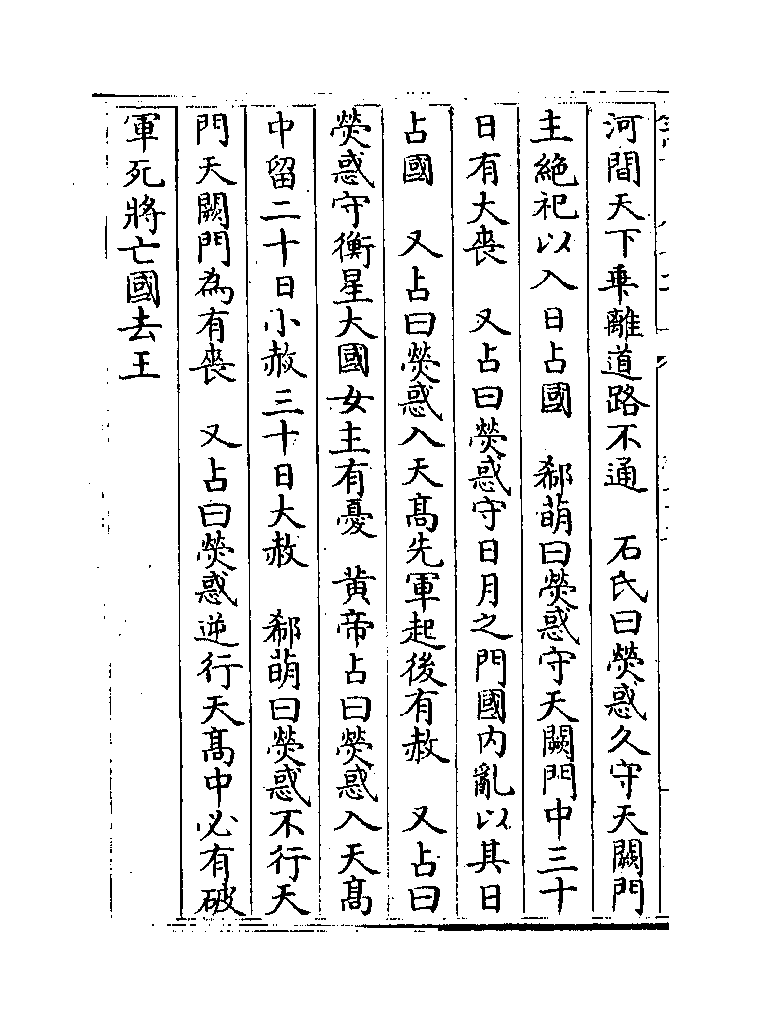 河間天下乗離道路不通　石氏曰熒惑久守天闕門
主絶祀以入日占國　郗萌曰熒惑守天闕門中三十
日有大喪　又占曰熒惑守日月之門國内亂以其日
占國　又占曰熒惑入天髙先軍起後有赦　又占曰
熒惑守衡星大國女主有憂　黄帝占曰熒惑入天髙
中留二十日小赦三十日大赦　郗萌曰熒惑不行天
門天闕門為有喪　又占曰熒惑逆行天髙中必有破
軍死將亡國去王